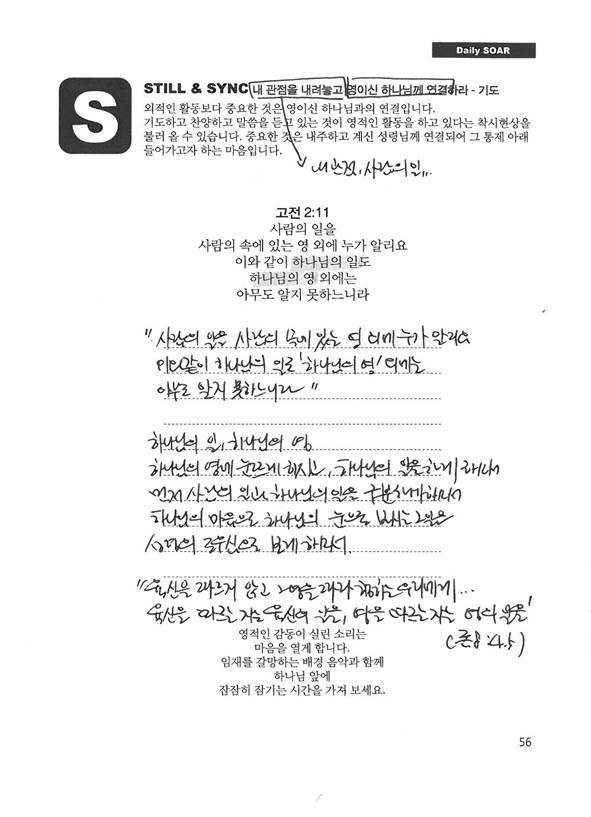 Daily SOAR
S
STILL & SYNC 내 관점을 내려놓고 영이신 하나님께 연결하라 - 기도
외적인 활동보다 중요한 것은 영이신 하나님과의 연결입니다.
기도하고 찬양하고 말씀을 듣고 있는 것이 영적인 활동을 하고 있다는 착시현상을
불러 올 수 있습니다. 중요한 것은 내주하고 계신 성령님께 연결되어 그 통제 아래
들어가고자 하는 마음입니다.
내 관점, 사람의 일...
고전 2:11
사람의 일을
사람의 속에 있는 영 외에 누가 알리요
이와 같이 하나님의 일도
하나님의 영 외에는
아무도 알지 못하느니라
"사람의 일을 사람의 속에 있는 영 외에 누가 알리요
이와같이 하나님의 일도 '하나님의 영' 외에는
아무도 알지 못하느니라"
하나님의 일, 하나님의 영
하나님의 영에 하시고, 하나님의 일을 하게 하소서
먼저 사람의 일과 하나님의 일을 구분하게 하소서
하나님의 마음으로 하나님의 눈으로 보시는 그것을
보게 하소서.
"육신을 따르지 않고 그 영을 따라 행하는 우리에게...
육신을 따르는 자는 육신의 일을, 영을 따르는 자는 영의 일을"
(롬8:4.5)
영적인 감동이 실린 소리는
마음을 열게 합니다.
임재를 갈망하는 배경 음악과 함께
하나님 앞에
잠잠히 잠기는 시간을 가져 보세요.
56